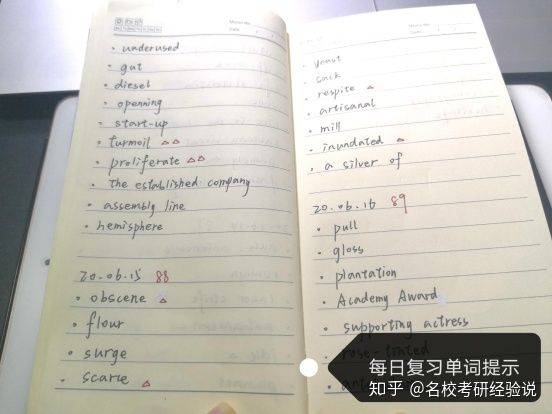 Memo No.
Date / /
· underused
· gut
· diesel
· openning
· start-up
· turmoil △△
· proliferate △△
· the established company
· assembly line
· hemisphere
20.06.15 88
· obscene △
· flour
· surge
· scarce △
Memo No.
Date / /
· yeast
· sack
· respite △
· artisanal
· mill
· inundated △
· a silver of
20.06.16 89
· pull
· gloss
· plantation
· Academy Award
· supporting actress
· rose-tinted
每日复习单词提示
知乎 @名校考研经验说